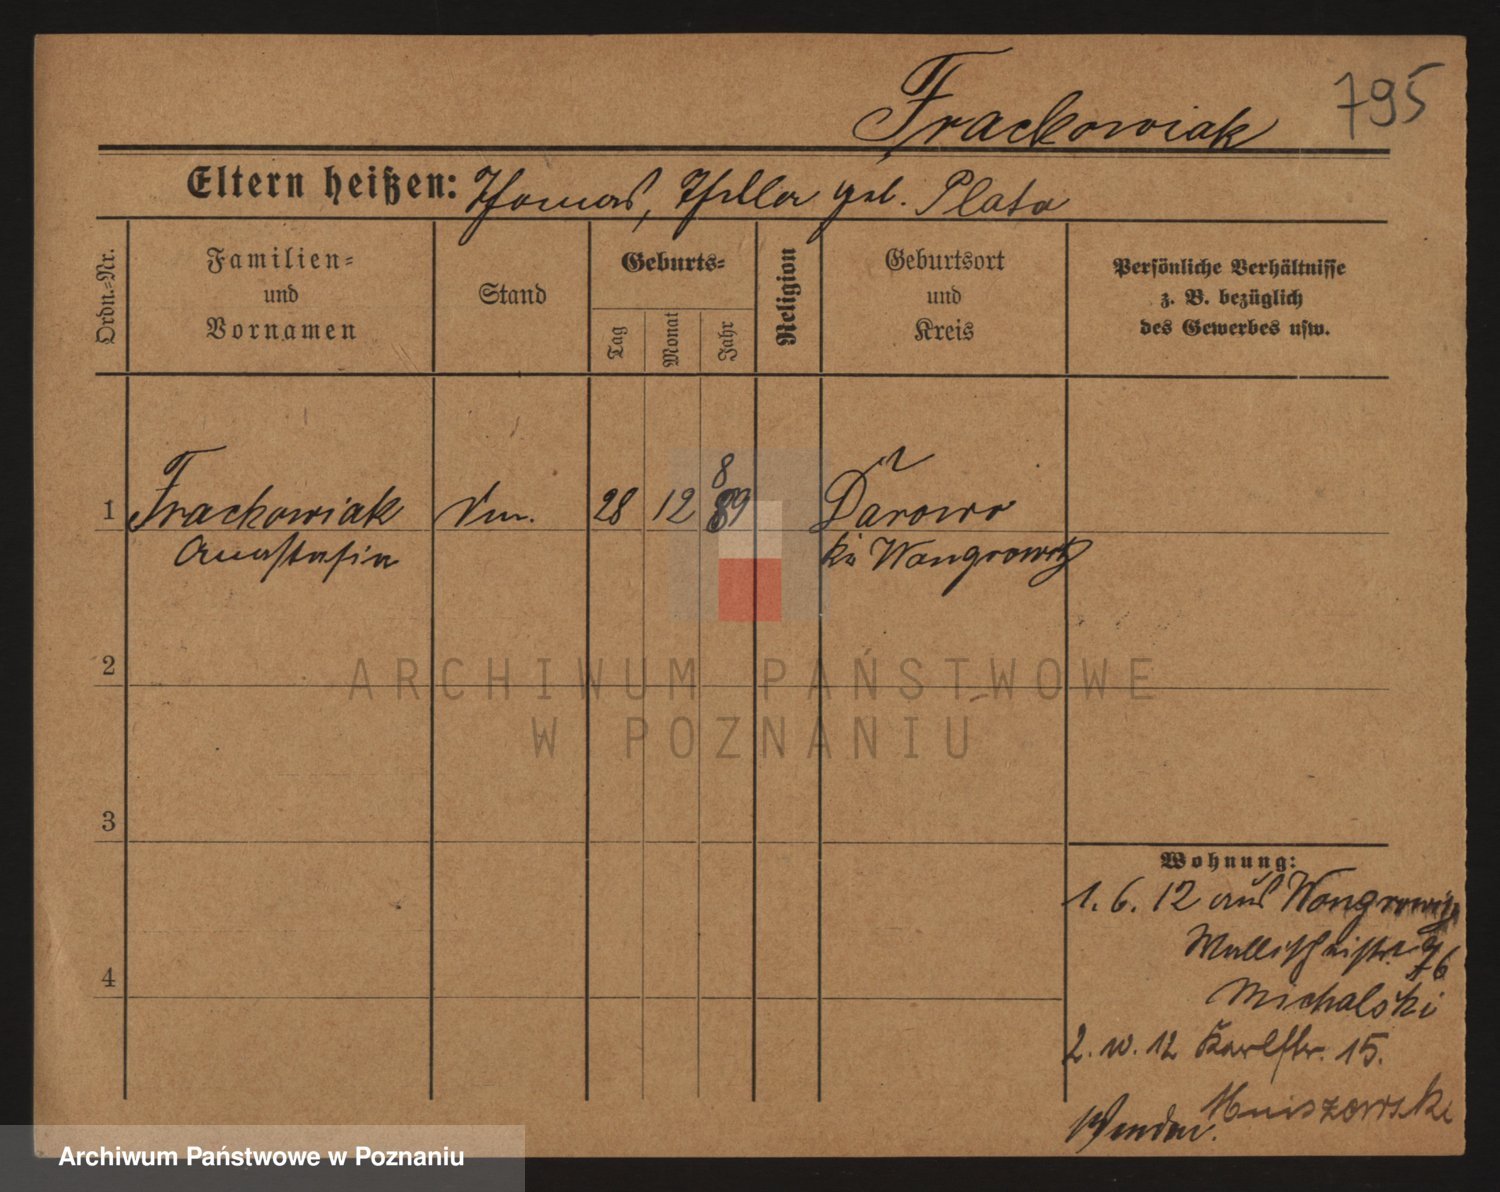 795
Frackowiak
Eltern heißen: Thomas, Thekla geb. Plata
Ordn.-Nr.
Familien-
und
Vornamen
Stand
Geburts-
Tag
Monat
Jahr
Religion
Geburtsort
und
Kreis
Persönliche Verhältnisse
z. B. bezüglich
des Gewerbes usw.
1 Frackowiak 28 12 89
8
Anastasia
Wongrowitz
2
3
4
Wohnung:
1. 6. 12 aus Wongrowitz
Wallischeistr. 76
Michalski
2. 10. 12 Karlstr. 15.
Wenden.
ARCHIWUM PAŃSTWOWE
W POZNANIU
Archiwum Państwowe w Poznaniu